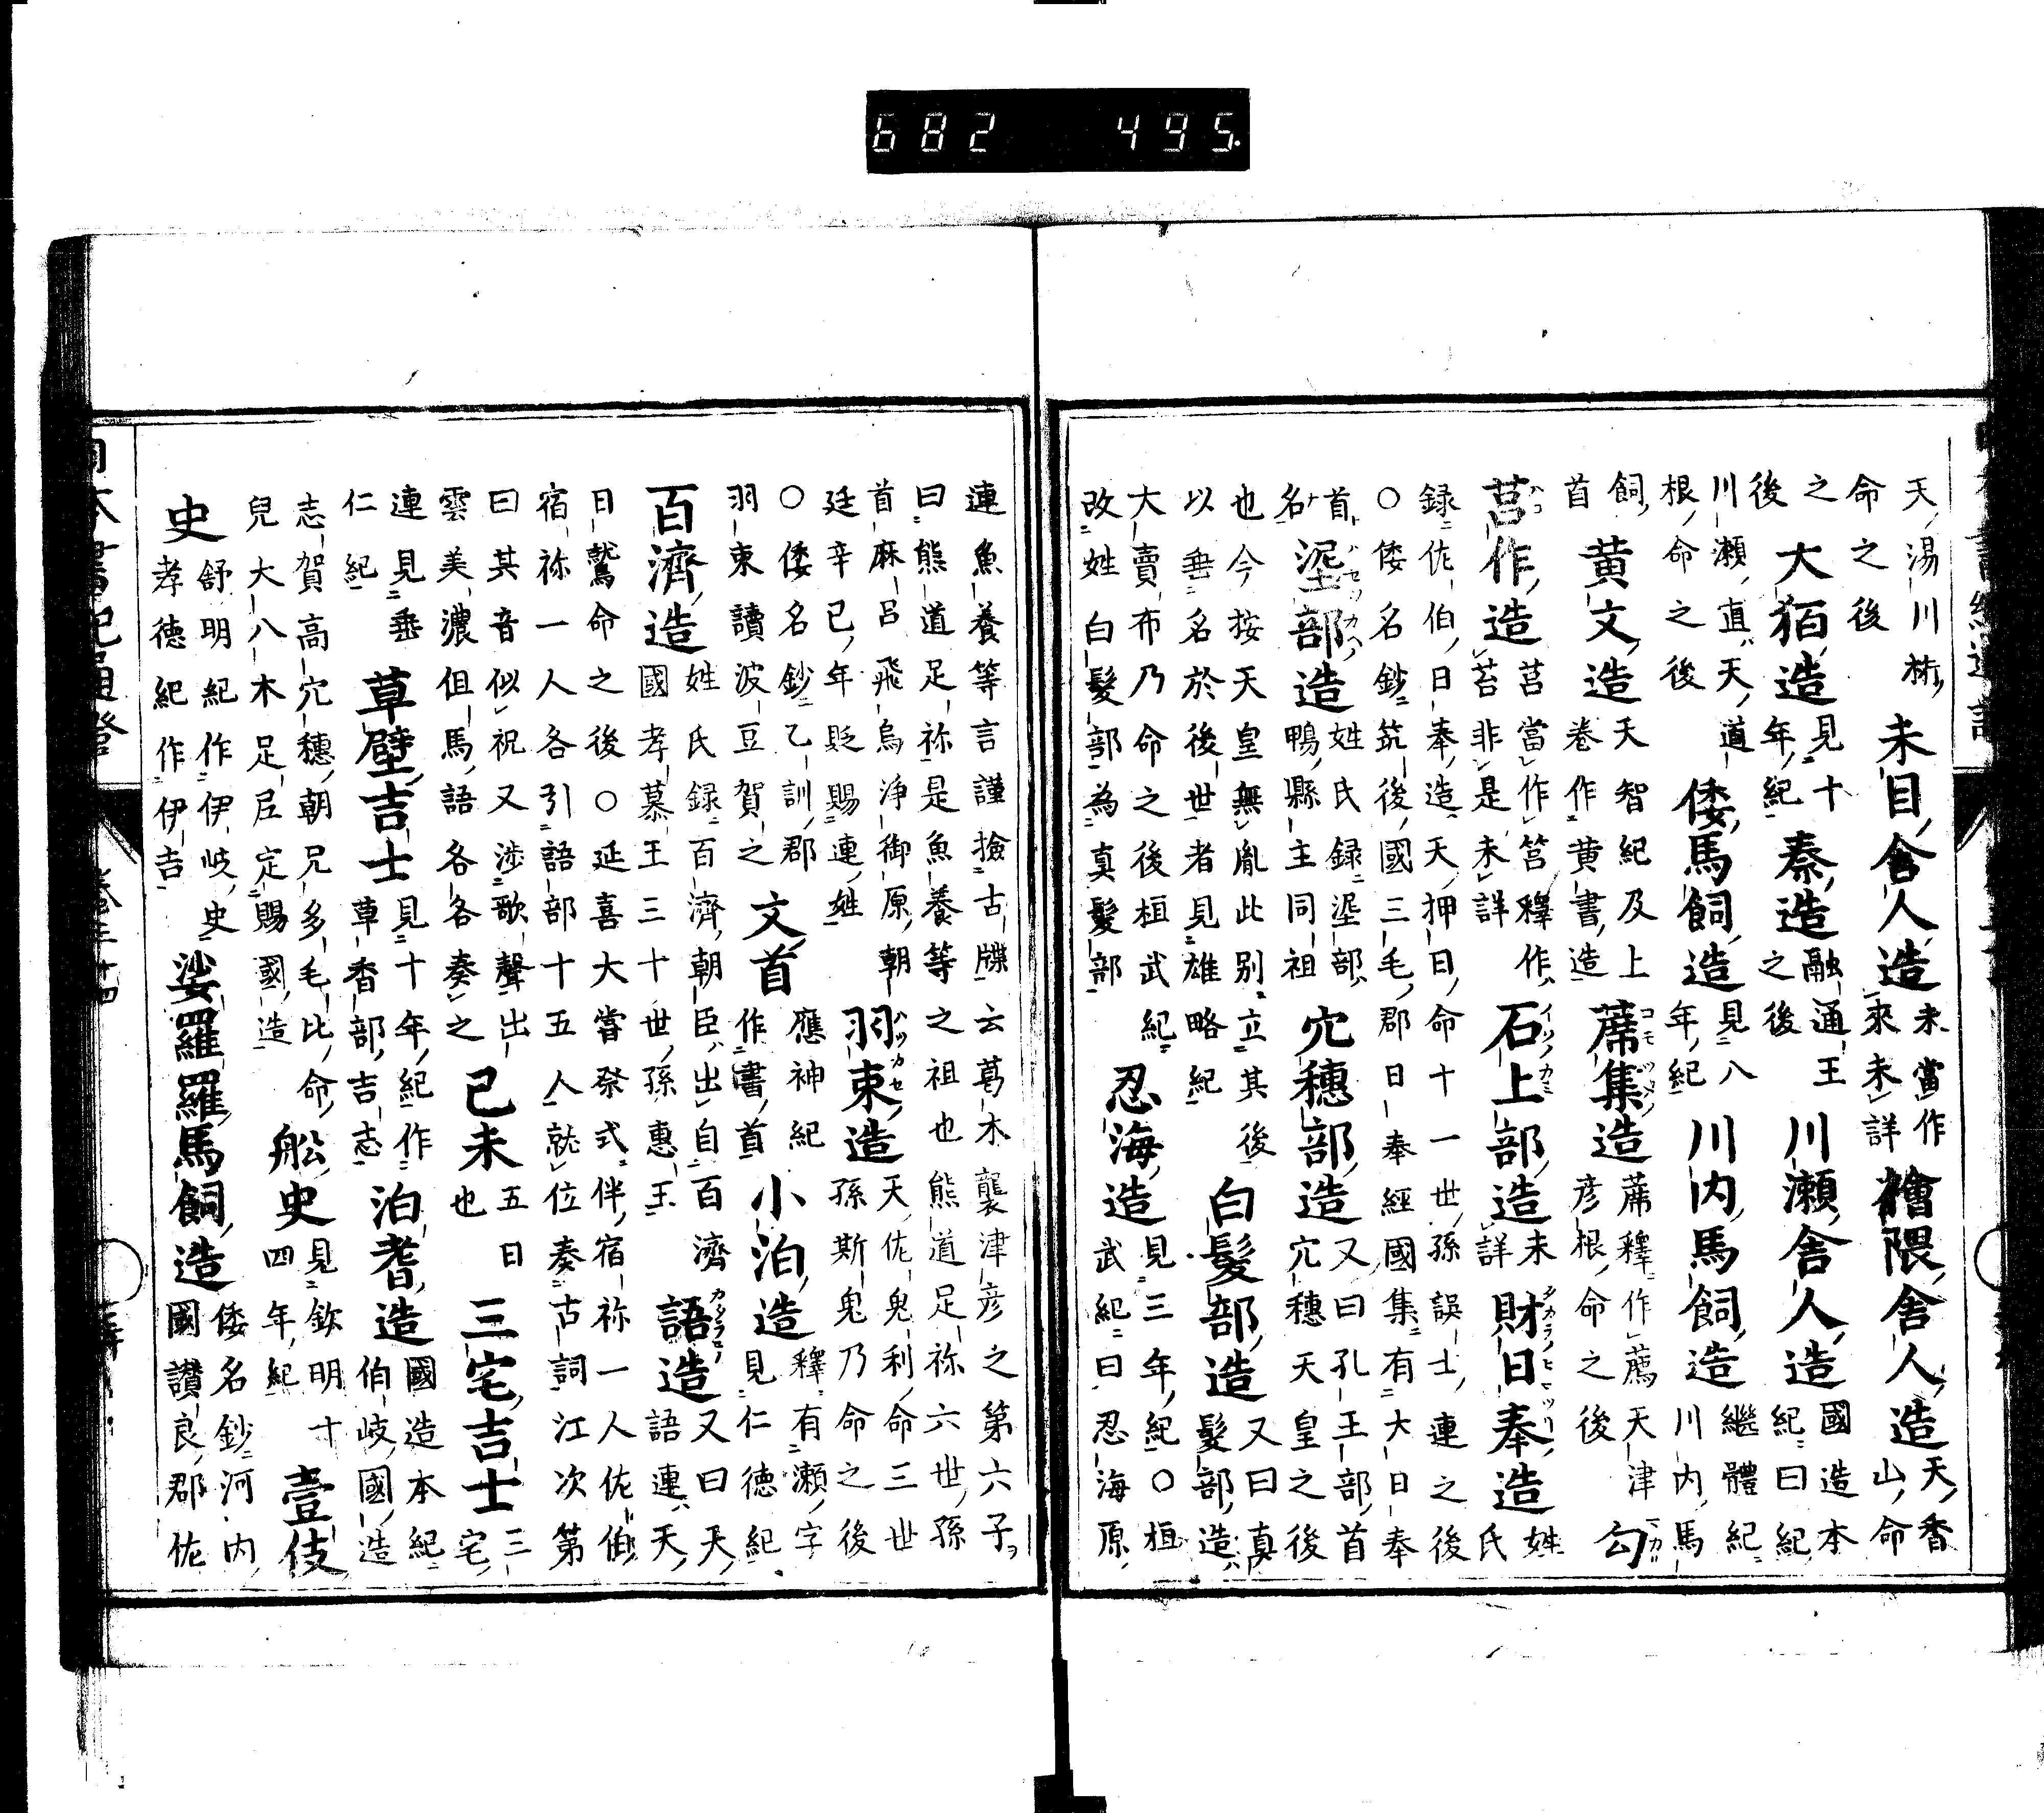 天湯川桁命之後 未目舍人造 未當作來未詳 檜隈舍人造 天香山命
之後 大狛造 見十年紀 秦造 融通王之後 川瀬舍人造 國造本紀曰紀
川瀬直天道根命之後 倭馬飼造 見八年紀 川内馬飼造 繼體紀川内馬
飼首 黄文造 天智紀及上巻作黄書造 蓆集造 蓆釋作薦天津彦根命之後 勾
莒作造 莒當作筥釋作苔非是未詳 石上部造 未詳 財日奉造 姓氏
録佐伯日奉造天押日命十一世孫誤士連之後
○倭名鈔筑後國三毛郡日奉經國集有大日奉
首名 埿部造 姓氏録埿部鴨縣主同祖 穴穗部造 又曰孔王部首穴穗天皇之後
也今按天皇無胤此別立其後以垂名於後世者見雄略紀 白髮部造 又曰真髮部造
大賣布乃命之後桓武紀改姓白髮部為真髮部 忍海造 見三年紀○桓武紀曰忍海原
連魚養等言謹撿古牒云葛木襲津彦之第六子
曰熊道足祢是魚養等之祖也熊道足祢六世孫
首麻呂飛鳥淨御原朝廷辛已年貶賜連姓 羽束造 天佐鬼利命三世孫斯鬼乃命之後
○倭名鈔乙訓郡羽束讀波豆賀之 文首 應神紀作書首 小泊造 釋有瀬字見仁徳紀
百濟造 姓氏録百濟朝臣出自百濟國孝慕王三十世孫惠王 語造 又曰天語連天
日鷲命之後○延喜大嘗祭式伴宿祢一人佐伯
宿祢一人各引語部十五人就位奏古詞江次第
曰其音似祝又渉歌聲出雲美濃但馬語各各奏之 已未 五日也 三宅吉士 三宅
連見垂仁紀 草壁吉士 見十年紀作草香部吉志 泊耆造 國造本紀伯岐國造
志賀高穴穗朝兄多毛比命兒大八木足尼定賜國造 舩史 見欽明十四年紀 壹伎
史 舒明紀作伊岐史孝徳紀作伊吉 娑羅羅馬飼造 倭名鈔河内國讃良郡佐
682 495.